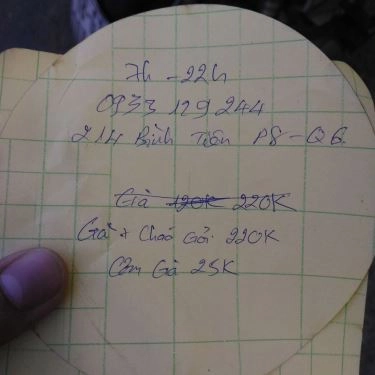 7h - 22h
0933 129 244
214 Bình Tiên P8 - Q6.
Gà 120K 220K
Gà + Cháo Gỏi 220K
Cơm Gà 25K